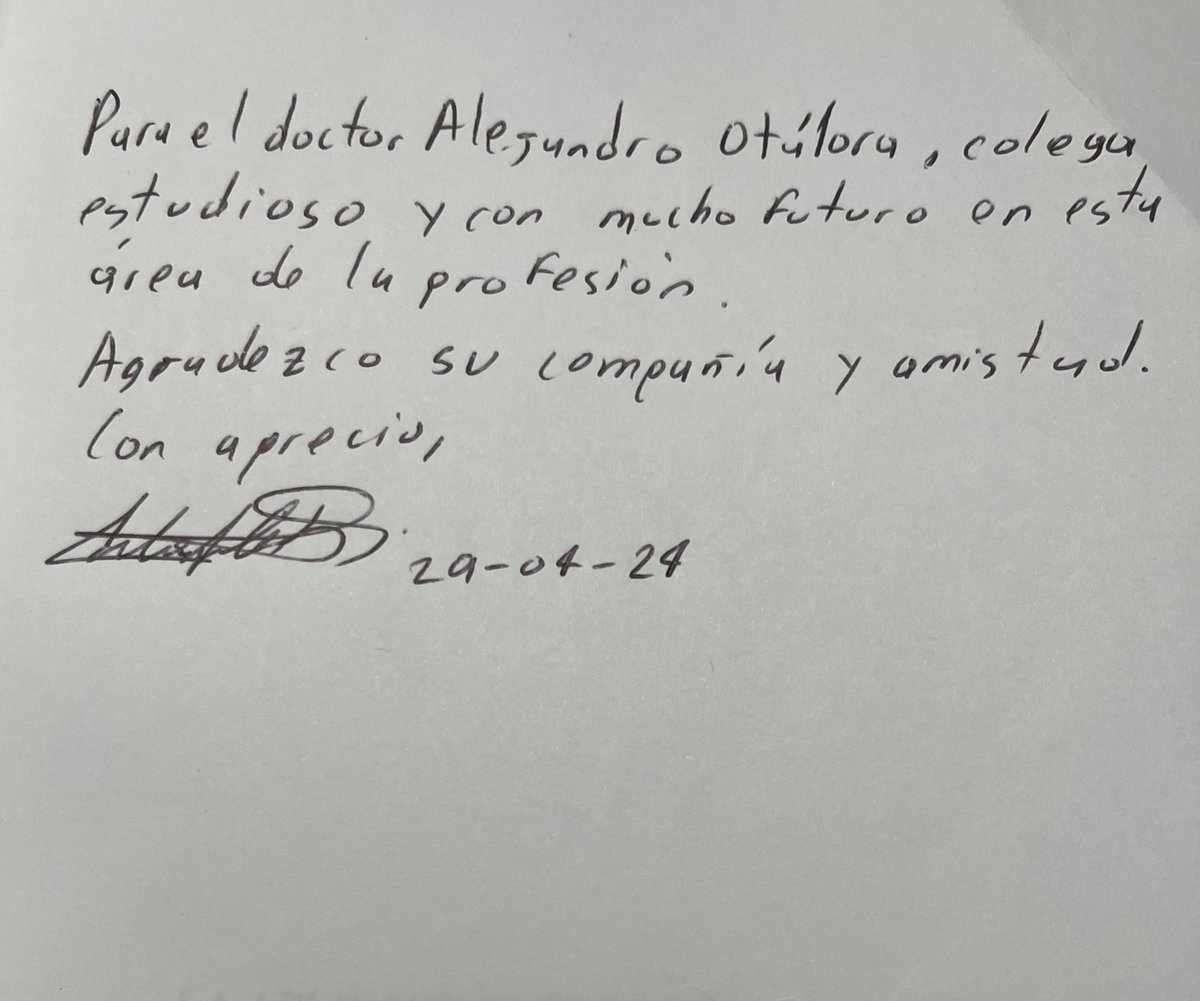 Para el doctor Alejandro Otálora, colega
estudioso y con mucho futuro en esta
área de la profesión.
Agradezco su compañía y amistad.
Con aprecio,
29-04-24